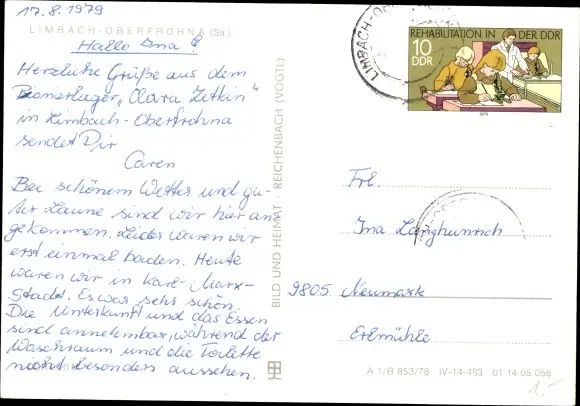 17.8.1979
LIMBACH-OBERFROHNA (Sa.)
Hallo Ina!
Herzliche Grüße aus dem
Pionierlager "Clara Zetkin"
in Limbach-Oberfrohna
sendet Dir
Caren
Bei schönem Wetter und gu-
ter Laune sind wir hier an
gekommen. Leider waren wir
erst einmal baden. Heute
waren wir in Karl-Marx-
Stadt. Es war sehr schön.
Die Unterkunft und das Essen
sind annehmbar, während der
Waschraum und die Toilette
nicht besonders aussehen.
BILD UND HEIMAT REICHENBACH (VOGTL)
LIMBACH-
REHABILITATION IN DER DDR
10
DDR
1979
Frl.
Ina Langheinrich
9805 Neumark
Erlmühle
A 1/B 853/78 IV-14-493 01 14 05 058
1.-